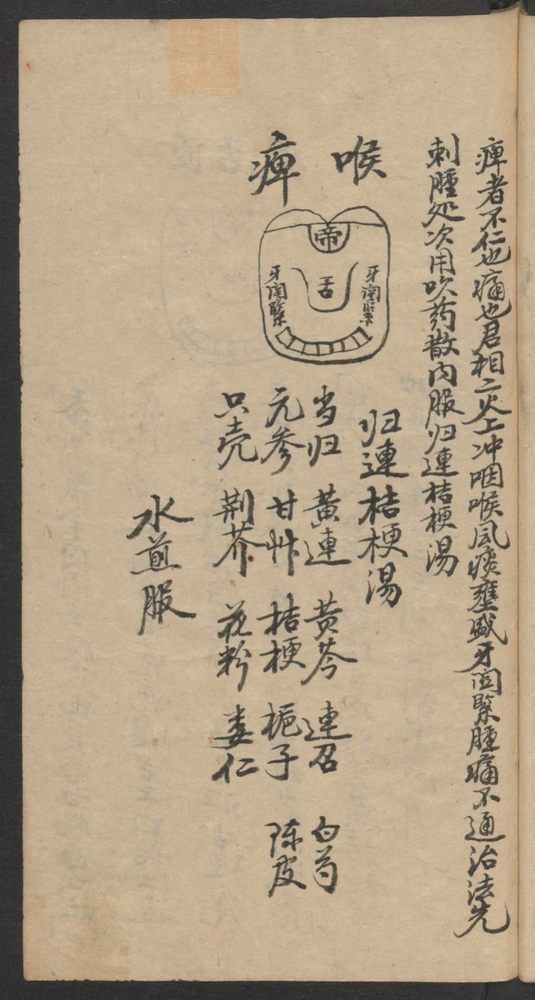 痺者不仁也痛也君相二火上冲咽喉風痰壅盛牙関緊腫痛不通治法先
刺腫处次用吹药散内服归連桔梗湯
喉痺
帝
舌
牙関緊
牙関緊
归連桔梗湯
当归 黄連 黄芩 連召 白芍
元参 甘艸 桔梗 梔子 陈皮
只壳 荆芥 花粉 蒌仁
水煎服